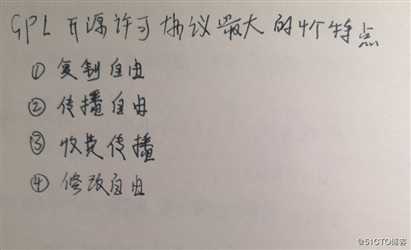 GPL开源许可协议最大的4个特点
① 复制自由
② 传播自由
③ 收费传播
④ 修改自由
@51CTO博客